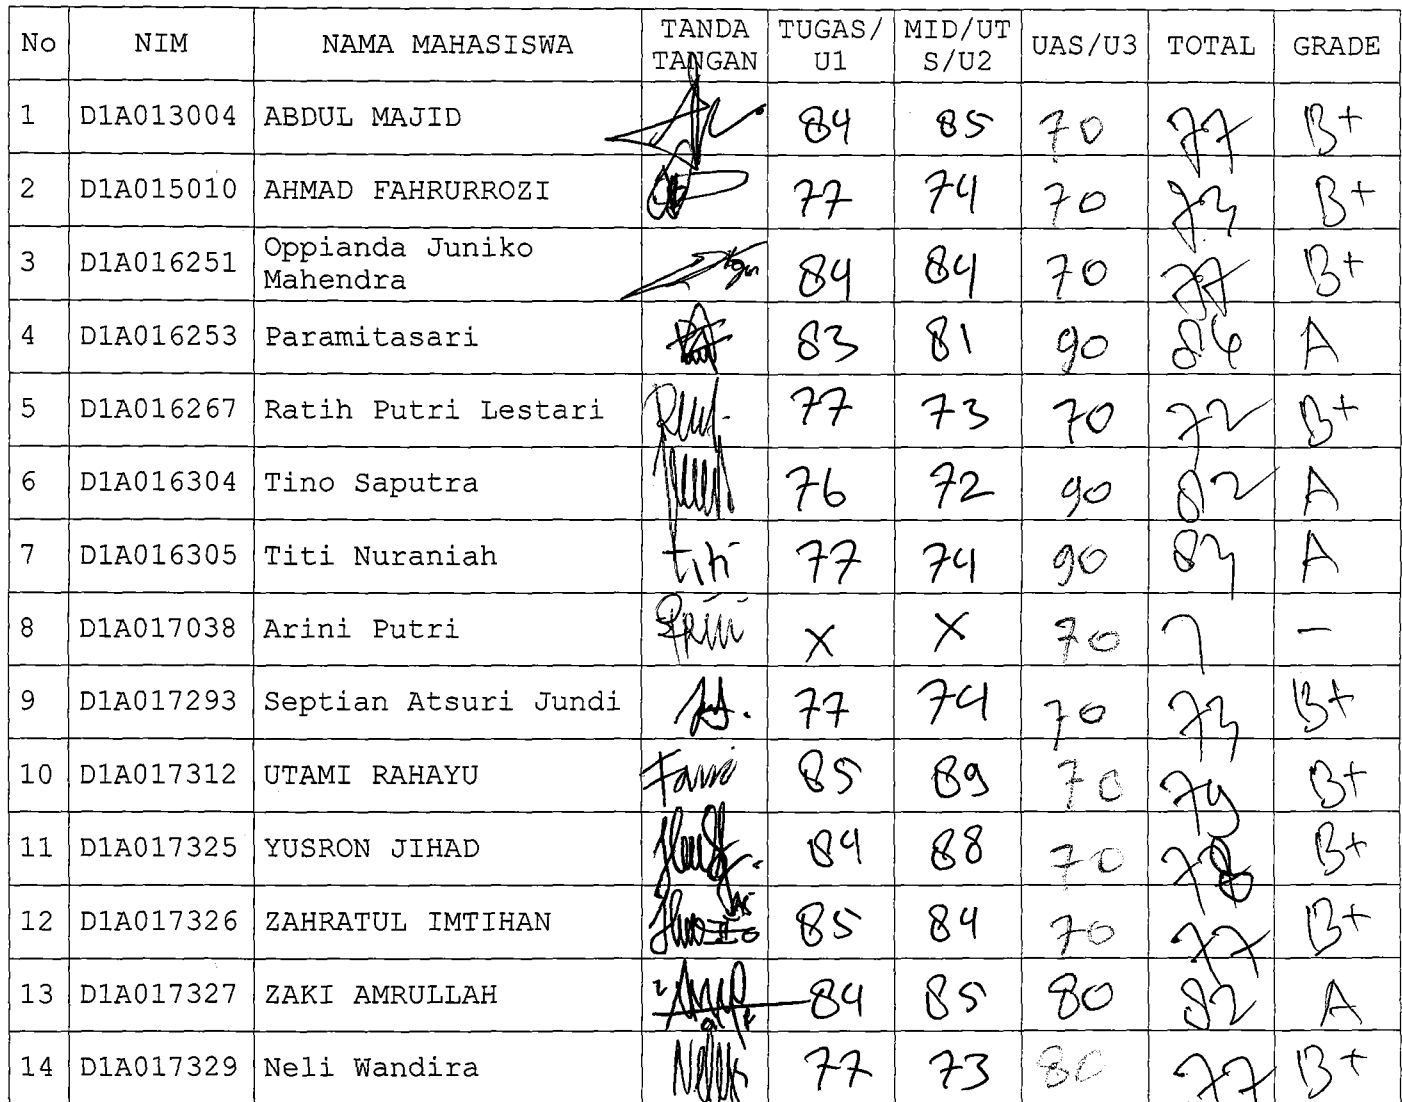 No NIM NAMA MAHASISWA TANDA TANGAN TUGAS/U1 MID/UTS/U2 UAS/U3 TOTAL GRADE
1 D1A013004 ABDUL MAJID 84 85 70 77 B+
2 D1A015010 AHMAD FAHRURROZI 77 74 70 73 B+
3 D1A016251 Oppianda Juniko Mahendra 84 84 70 77 B+
4 D1A016253 Paramitasari 83 81 90 86 A
5 D1A016267 Ratih Putri Lestari 77 73 70 72 B+
6 D1A016304 Tino Saputra 76 72 90 82 A
7 D1A016305 Titi Nuraniah titi 77 74 90 83 A
8 D1A017038 Arini Putri X X 70 –
9 D1A017293 Septian Atsuri Jundi 77 74 70 73 B+
10 D1A017312 UTAMI RAHAYU 85 89 70 79 B+
11 D1A017325 YUSRON JIHAD 84 88 70 78 B+
12 D1A017326 ZAHRATUL IMTIHAN 85 84 70 77 B+
13 D1A017327 ZAKI AMRULLAH 84 85 80 82 A
14 D1A017329 Neli Wandira 77 73 80 77 B+